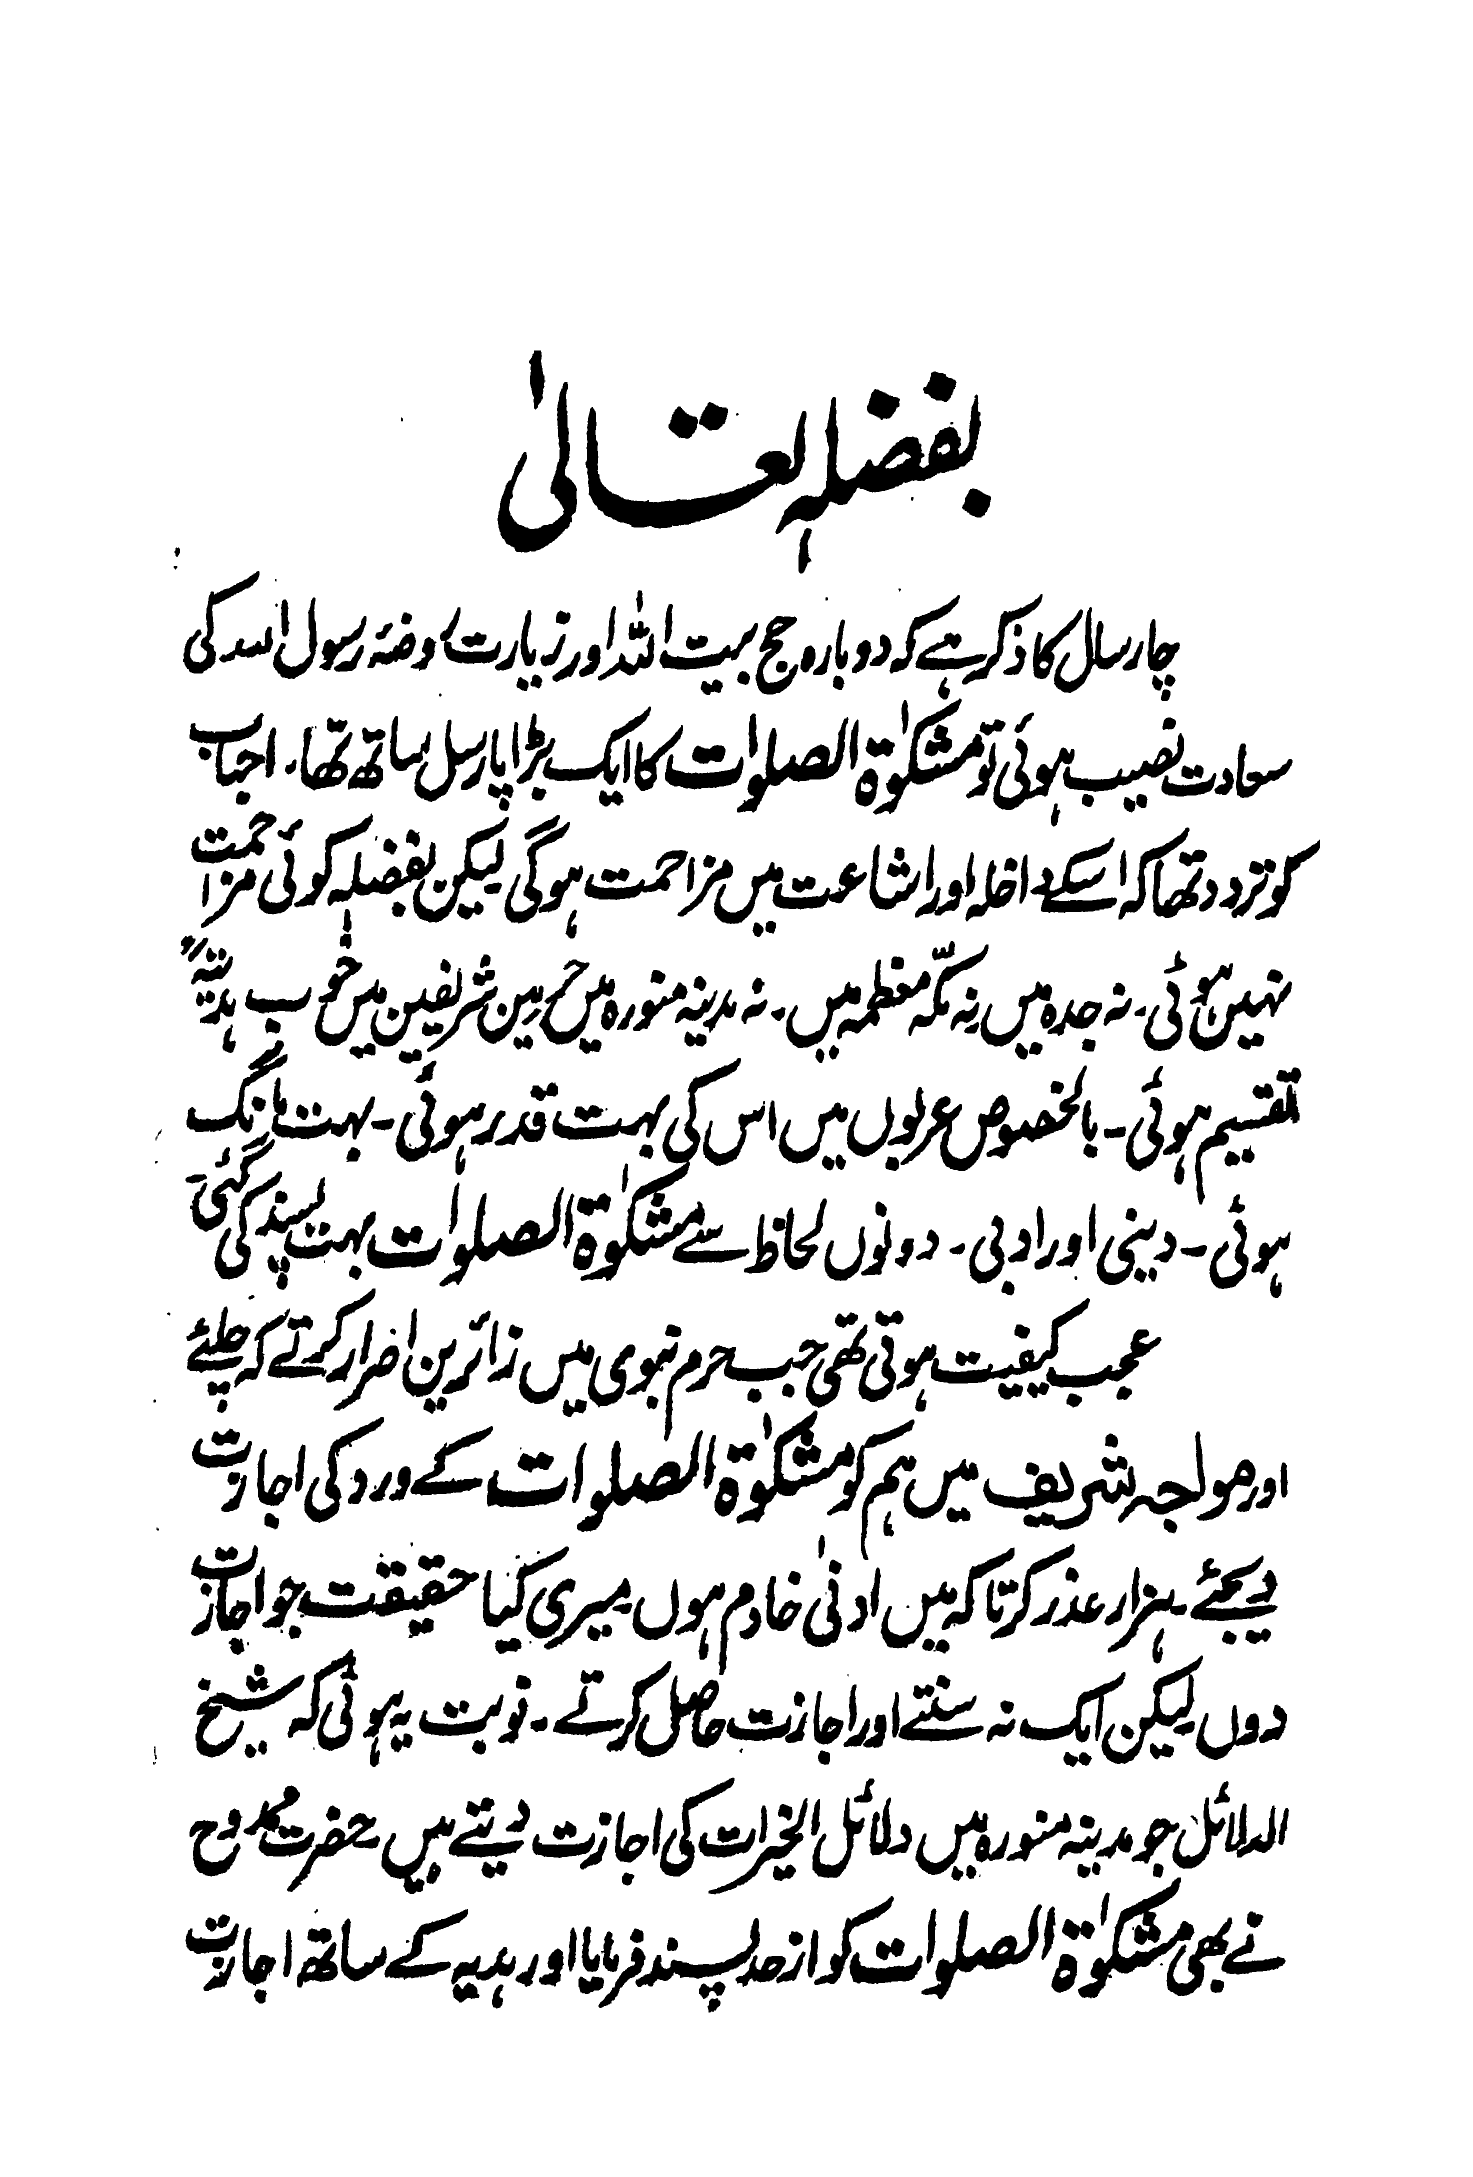 بفضلہ تعالیٰ
چار سال کا ذکر ہے کہ دوبارہ حج بیت اللہ اور زیارت روضۂ رسول اللہ کی
سعادت نصیب ہوئی تو مشکوٰۃ الصلوات کا ایک بڑا پارسل ساتھ تھا۔ احباب
کو تردد تھا کہ اسکے داخلہ اور اشاعت میں مزاحمت ہوگی لیکن بفضلہ کوئی مزاحمت
نہیں ہوئی۔ نہ جدہ میں نہ مکّہ معظمہ میں۔ نہ مدینہ منورہ میں حرمین شریفین میں خوب ہدیتہً
تقسیم ہوئی۔ بالخصوص عربوں میں اس کی بہت قدر ہوئی۔ بہت مانگ
ہوئی۔ دینی اور ادبی۔ دونوں لحاظ سے مشکوٰۃ الصلوات بہت پسند کی گئی۔
عجب کیفیت ہوتی تھی جب حرم نبوی میں زائرین اضرار کرتے کہ چلئے
اور مواجہ شریف میں ہم کو مشکوٰۃ الصلوات کے ورد کی اجازت
دیجئے۔ ہزار عذر کرتا کہ میں ادنیٰ خادم ہوں میری کیا حقیقت جو اجازت
دوں لیکن ایک نہ سنتے اور اجازت حاصل کرتے۔ نوبت یہ ہوئی کہ شیخ
الدلائل جو مدینہ منورہ میں دلائل الخیرات کی اجازت دیتے ہیں حضرت ممدوح
نے بھی مشکوٰۃ الصلوات کو از حد پسند فرمایا اور ہدیہ کے ساتھ اجازت